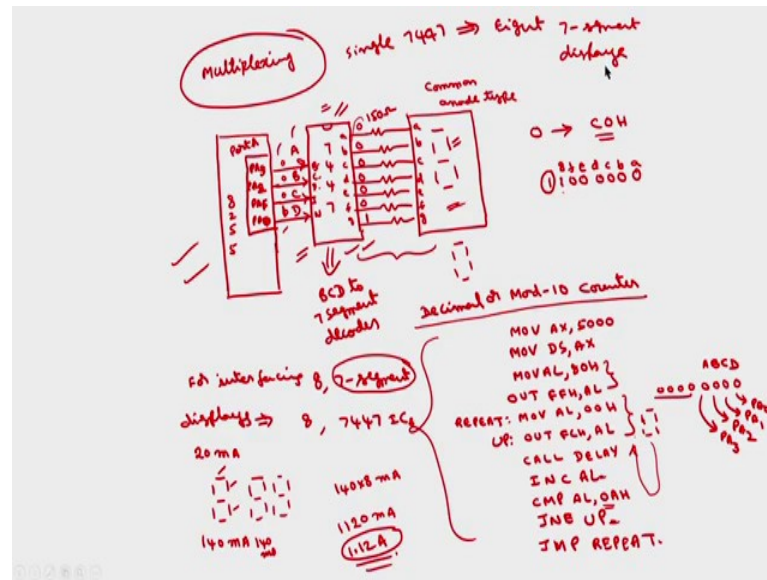 Multiplexing
Single 7447 ⇒ Eight 7-segment
displays
Common
anode type
150Ω
Port A
8
2
5
5
7
4
4
7
a
b
c
d
e
f
g
0
0
0
0
0
0
1
0 → C0H
g f e d c b a
1 1 0 0 0 0 0 0
BCD to
7 segment
decoder
Decimal or Mod-10 Counter
MOV AX, 5000
MOV DS, AX
MOV AL, 80H
OUT FFH, AL
REPEAT: MOV AL, 00H
UP: OUT FCH, AL
CALL DELAY
INC AL
CMP AL, 0AH
JNE UP
JMP REPEAT.
ABCD
0000 0000
PA0
PA1
PA2
PA3
For interfacing 8, 7-segment
displays ⇒ 8, 7447 ICs
20 mA
140 mA 140 mA
140x8 mA
1120 mA
1.12A